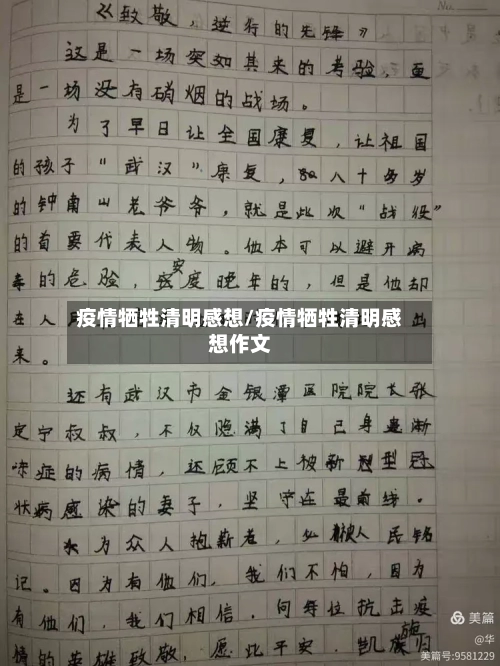 《致敬，逆行的先锋》
这是一场突如其来的考验，更
是一场没有硝烟的战场。
为了早日让全国康复，让祖国
的孩子“武汉”康复，80八十多岁
的钟南山老爷爷，就是此次“战役”
的首要代表人物。他本可以避开病
毒的危险，安度晚年的，但是他却
在人 出
疫情牺牲清明感想/疫情牺牲清明感
想作文
来。
还有武汉市金银潭医院院长张
定宁叔叔，不仅隐满了自己身患渐
冻症的病情，还顾不上被新型冠
状病感染的妻子，坚守在最前线。
为众人抱薪者，必被人民铭
记。因为有他们，我们不怕，因为
有他们，我们相信，向每位抗击疫
情的英雄致敬，愿此平安，凯旋归
美篇
@华
美篇号:9581229